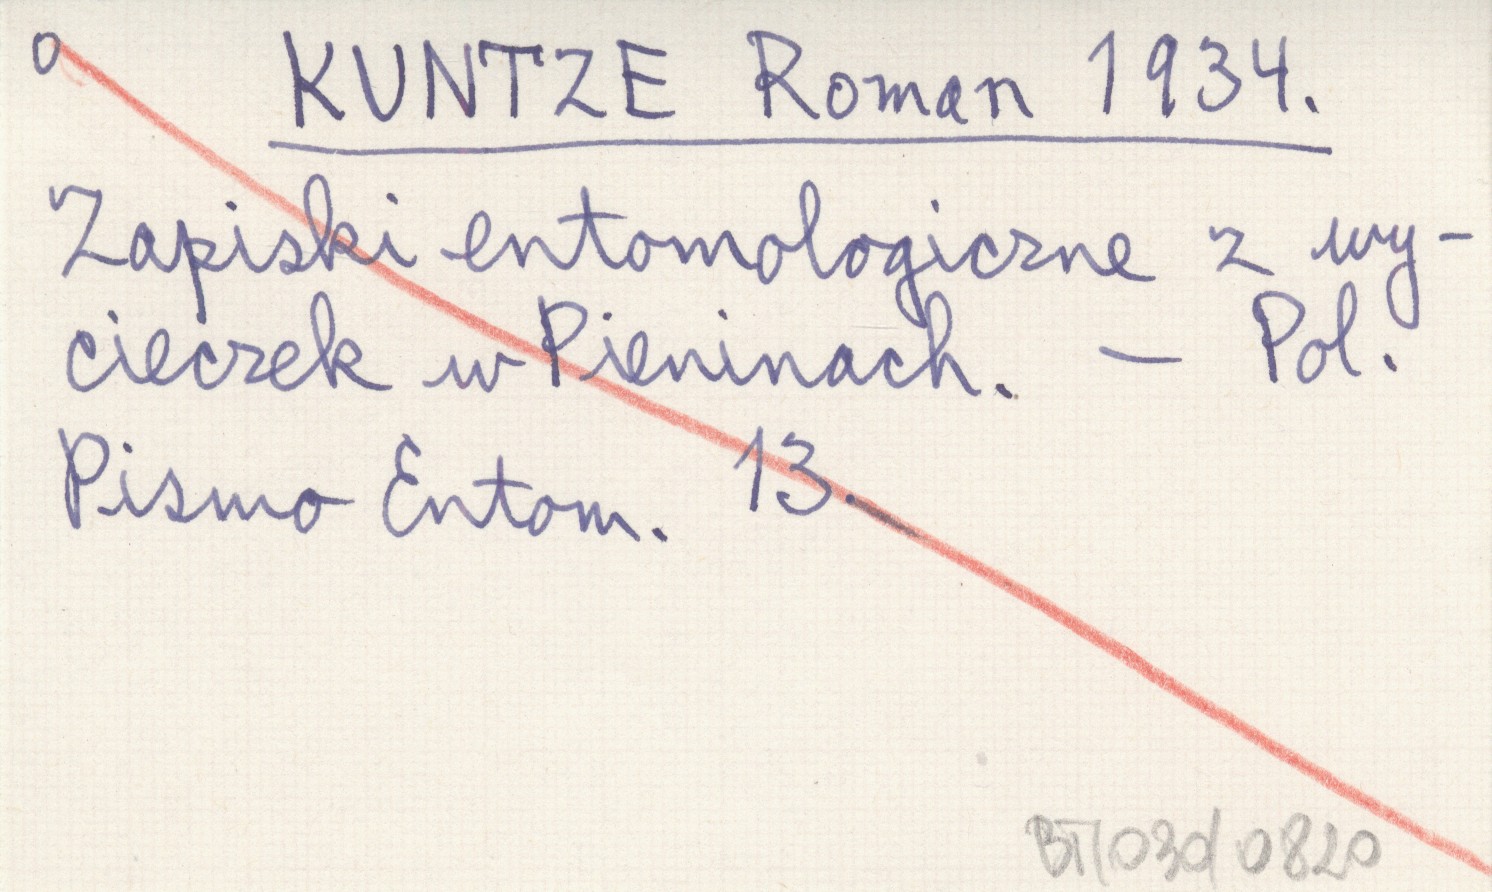 O KUNTZE Roman 1934.
Zapiski entomologiczne z wy-
cieczek w Pieninach. — Pol.
Pismo Entom. 13.
BT/030/0820